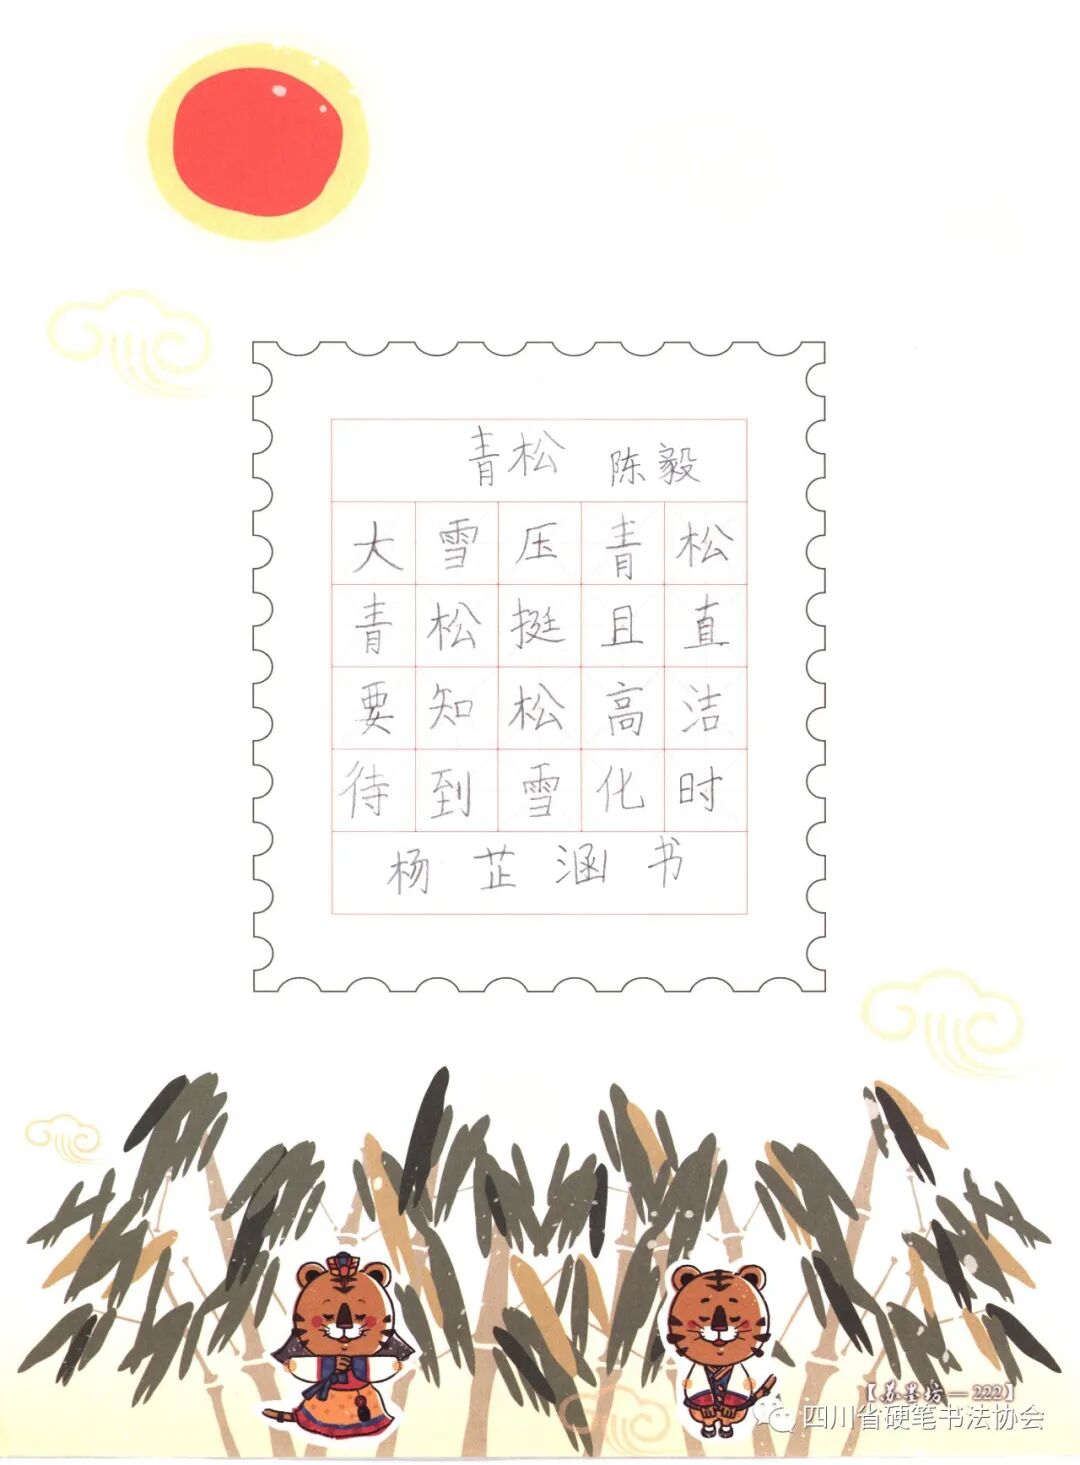 青松 陈毅
大雪压青松
青松挺且直
要知松高洁
待到雪化时
杨芷涵书
【苏墨坊—222】
四川省硬笔书法协会